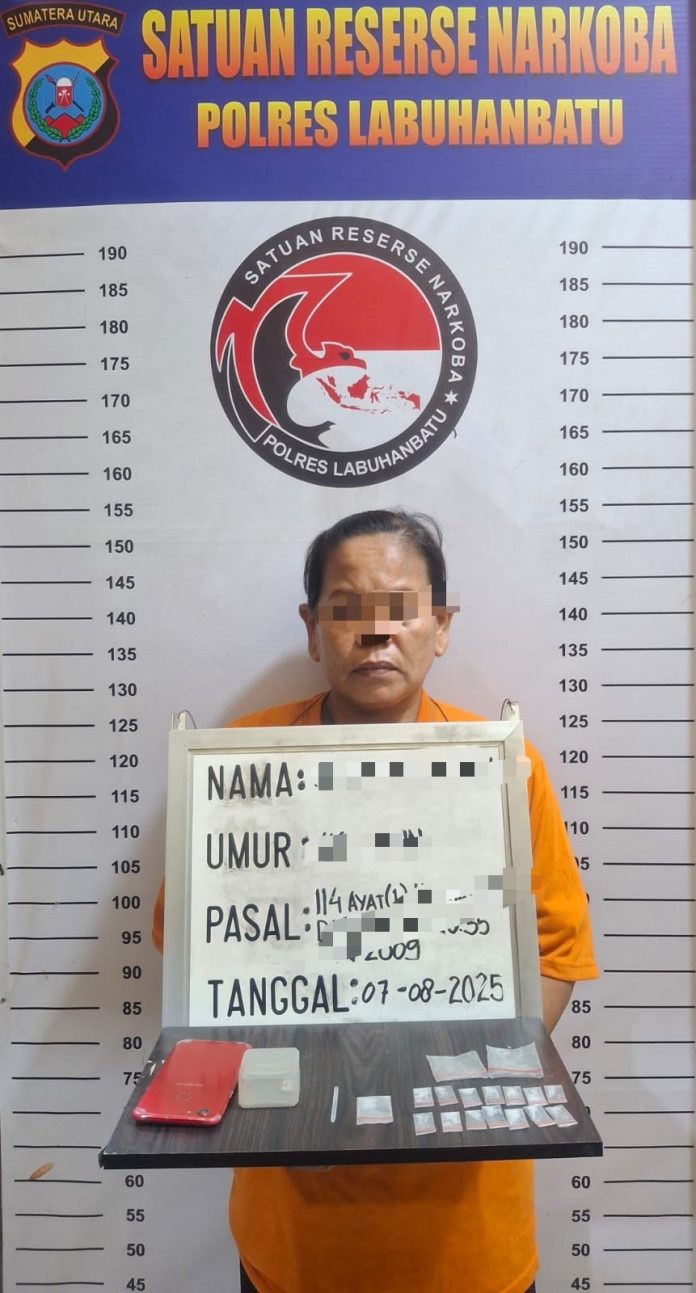 SUMATERA UTARA
SATUAN RESERSE NARKOBA
POLRES LABUHANBATU
SATUAN RESERSE NARKOBA
POLRES LABUHANBATU
190 190
185 185
180 180
175 175
170 170
165 165
160 160
155 155
150 150
145 145
140 140
135 135
130 130
125 125
120 120
115 115
110 110
105
100 100
95 95
90 90
85 85
80 80
75
60 60
55 55
50 50
45 45
NAMA:
UMUR:
PASAL: 114 AYAT(1)
2009
TANGGAL: 07-08-2025